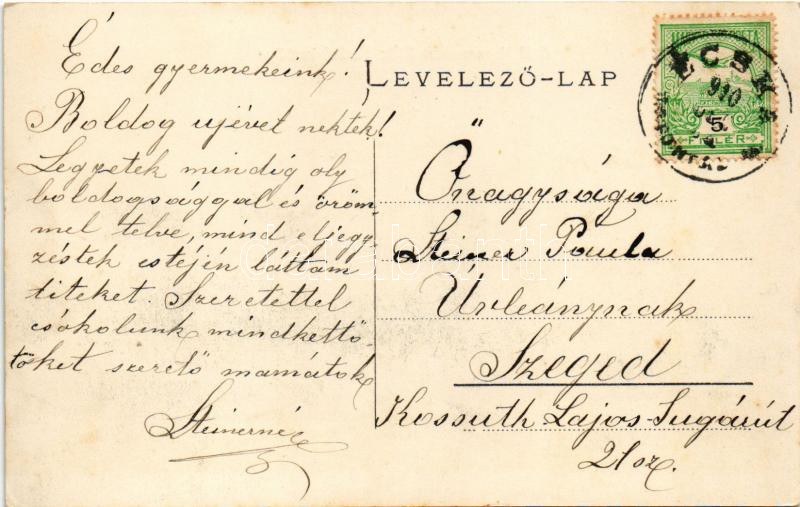 Édes gyermekeink!
Boldog ujévet nektek!
Legyetek mindig oly
boldogsággal és öröm-
mel telve, mind eljegy-
zéstek estéjén láttam
titeket. Szeretettel
csókolunk mindkettő-
tőket szerető mamátok
Steinerné
LEVELEZŐ-LAP
Őnagysága
Steiner Paula
Úrleánynak
Szeged
Kossuth Lajos-Sugárút
21 sz.
ÉCSKA
910
5
FILLÉR